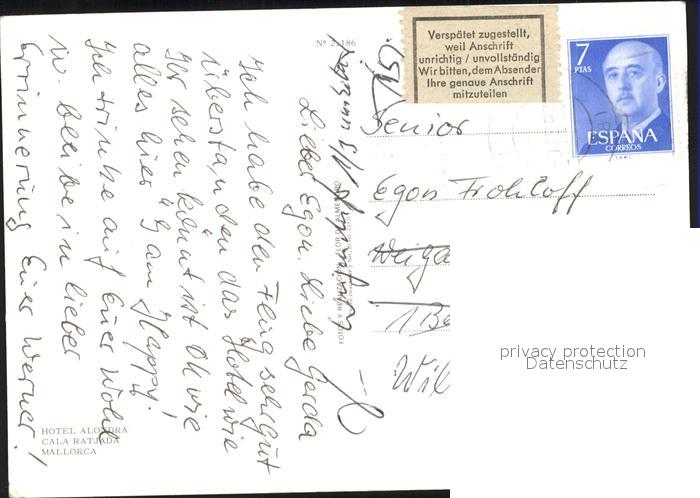 Nº 2.186
Verspätet zugestellt,
weil Anschrift
unrichtig / unvollständig
Wir bitten, dem Absender
Ihre genaue Anschrift
mitzuteilen
7
PTAS
ESPAÑA
CORREOS
Lieber Egon, Liebe Gerda
Ich habe den Flug sehr gut
überstanden das Hotel wie
Ihr sehen könnt ist Ok wie
alles hier "I am Happy!
Ich trinke auf Euer Wohl
u. bleibe in lieber
Erinnerung Euer Werner!
Senior
Egon Frohloff
Weiga
1 Be
Wil
HOTEL ALONDRA
CALA RATJADA
MALLORCA
privacy protection
Datenschutz